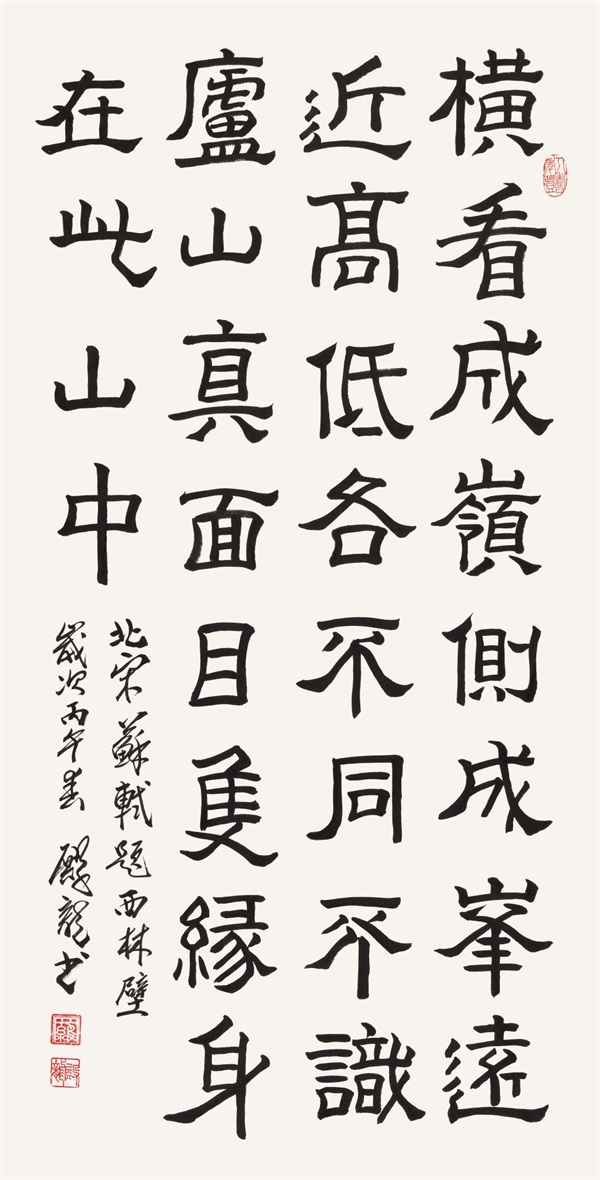 橫看成嶺側成峯遠
近高低各不同不識
廬山真面目隻緣身
在此山中
北宋蘇軾題西林壁
歲次丙午春 龍書